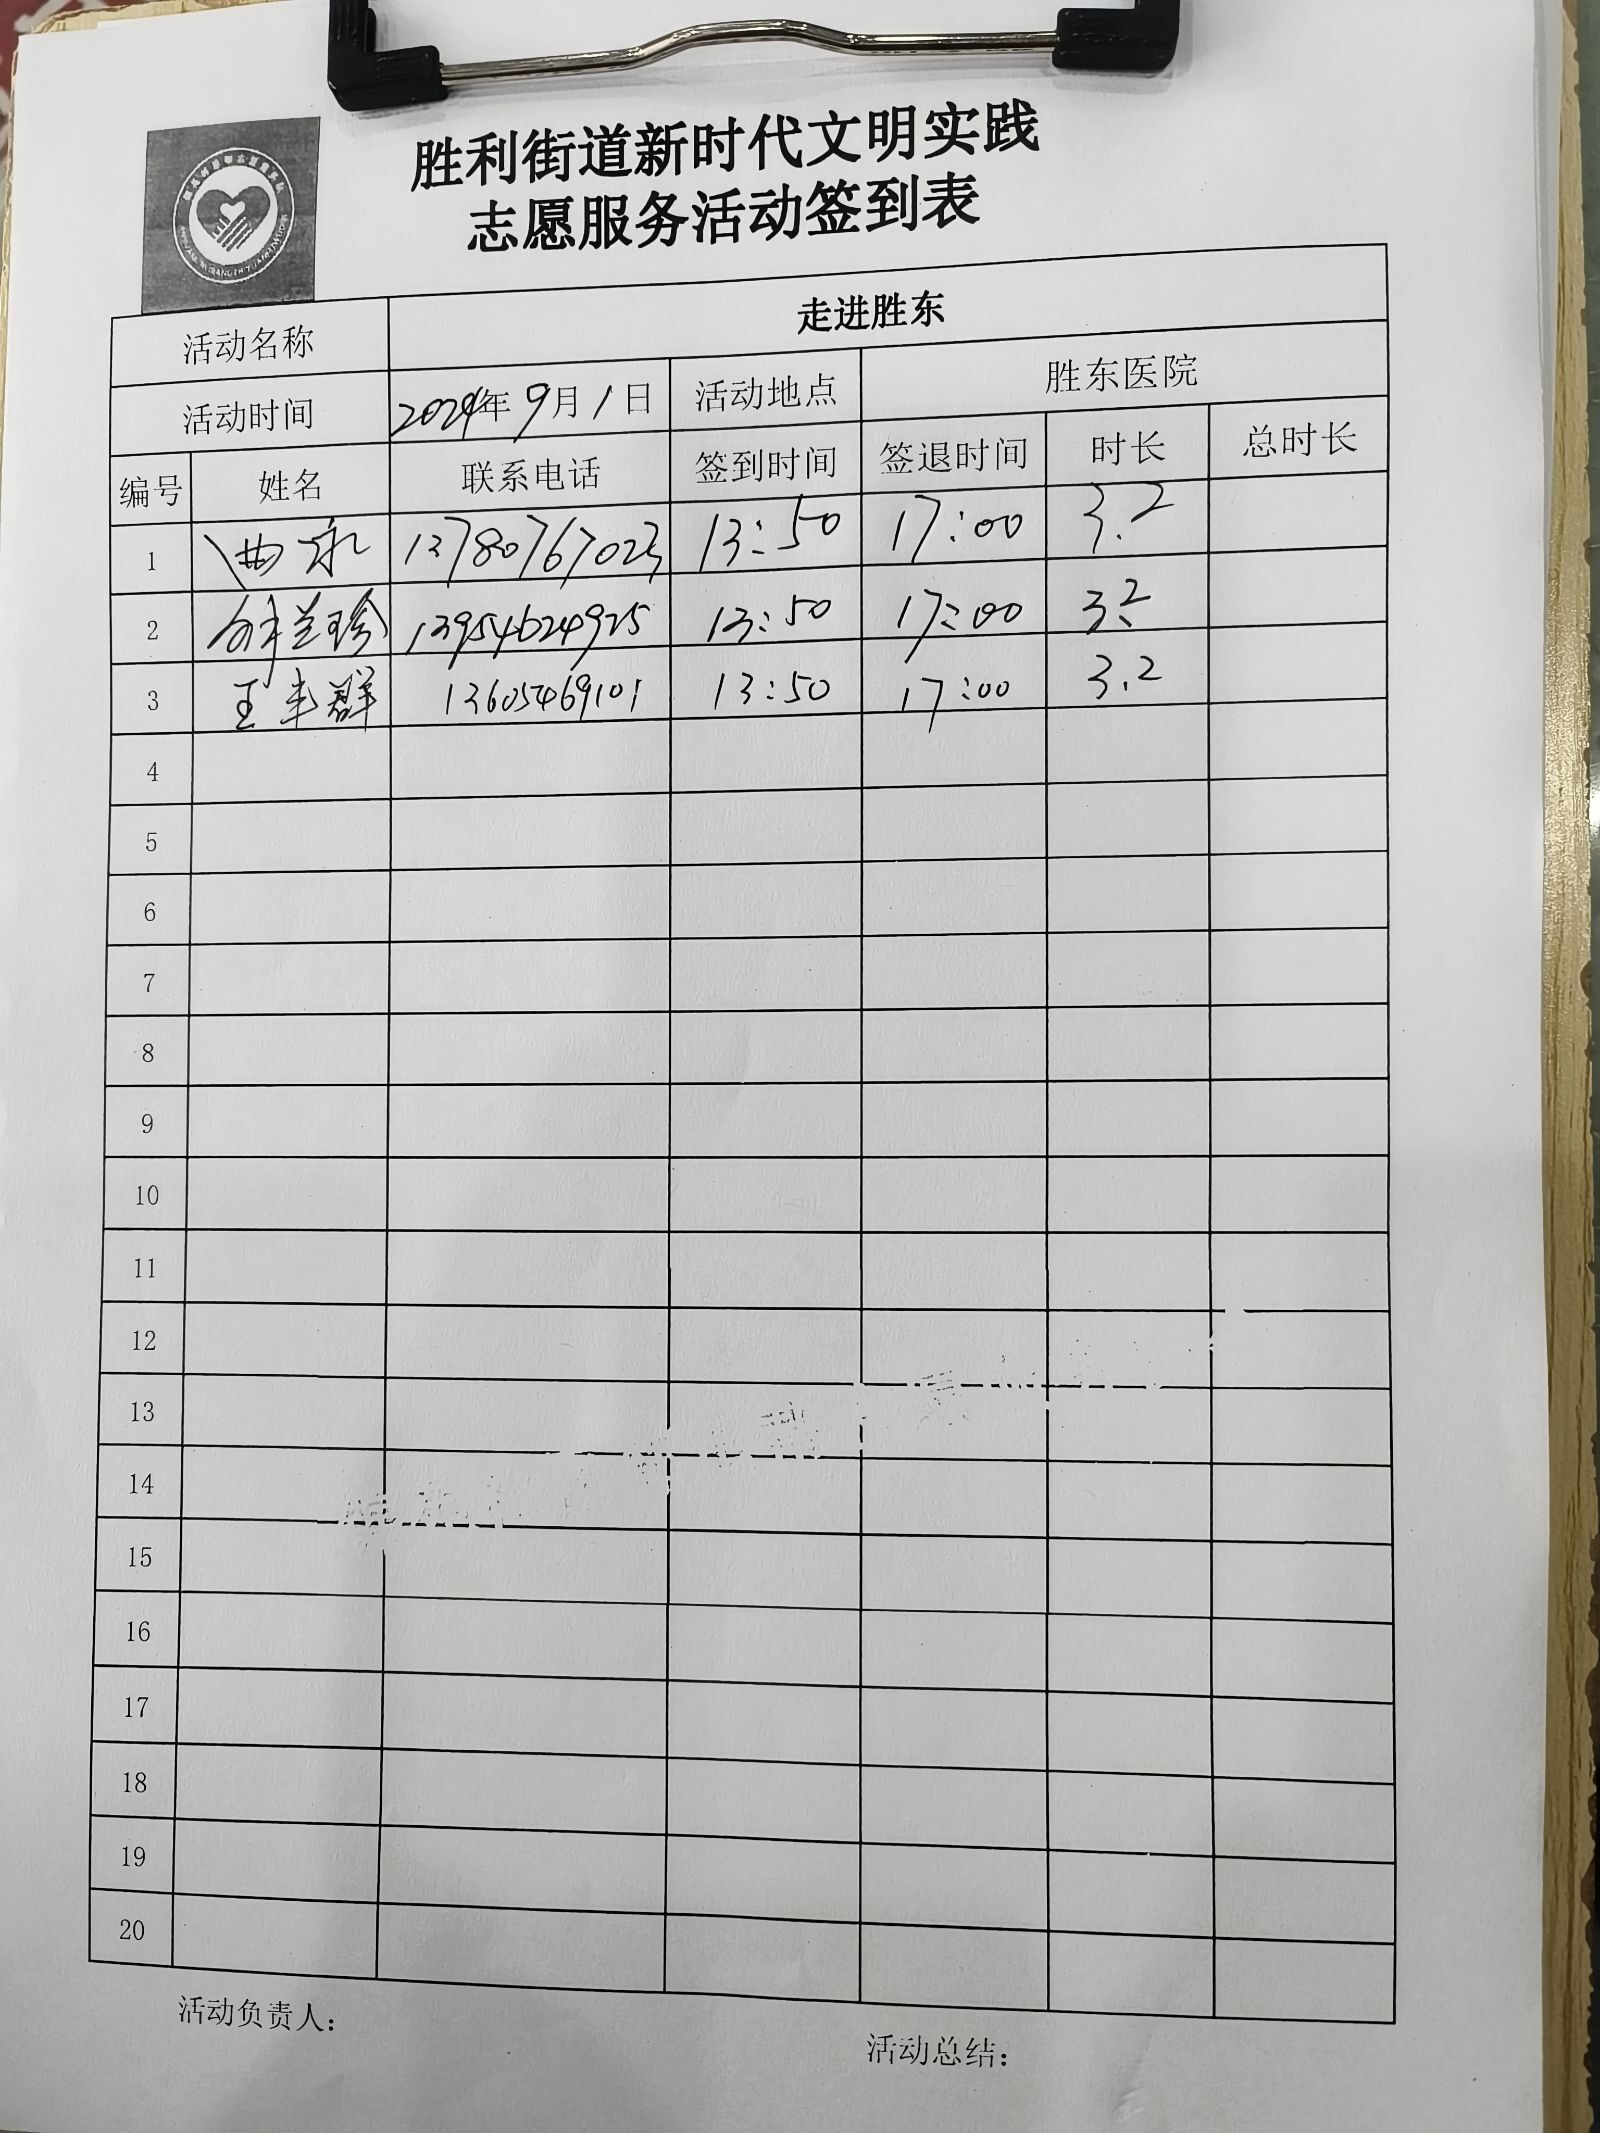 胜利街道新时代文明实践
志愿服务活动签到表
活动名称 走进胜东
活动时间 2024年9月1日 活动地点 胜东医院
编号 姓名 联系电话 签到时间 签退时间 时长 总时长
1 13780767023 13:50 17:00 3.2
2 兰珍 13954624925 13:50 17:00 3.2
3 王丰群 13605469101 13:50 17:00 3.2
4
5
6
7
8
9
10
11
12
13
14
15
16
17
18
19
20
活动负责人：
活动总结：